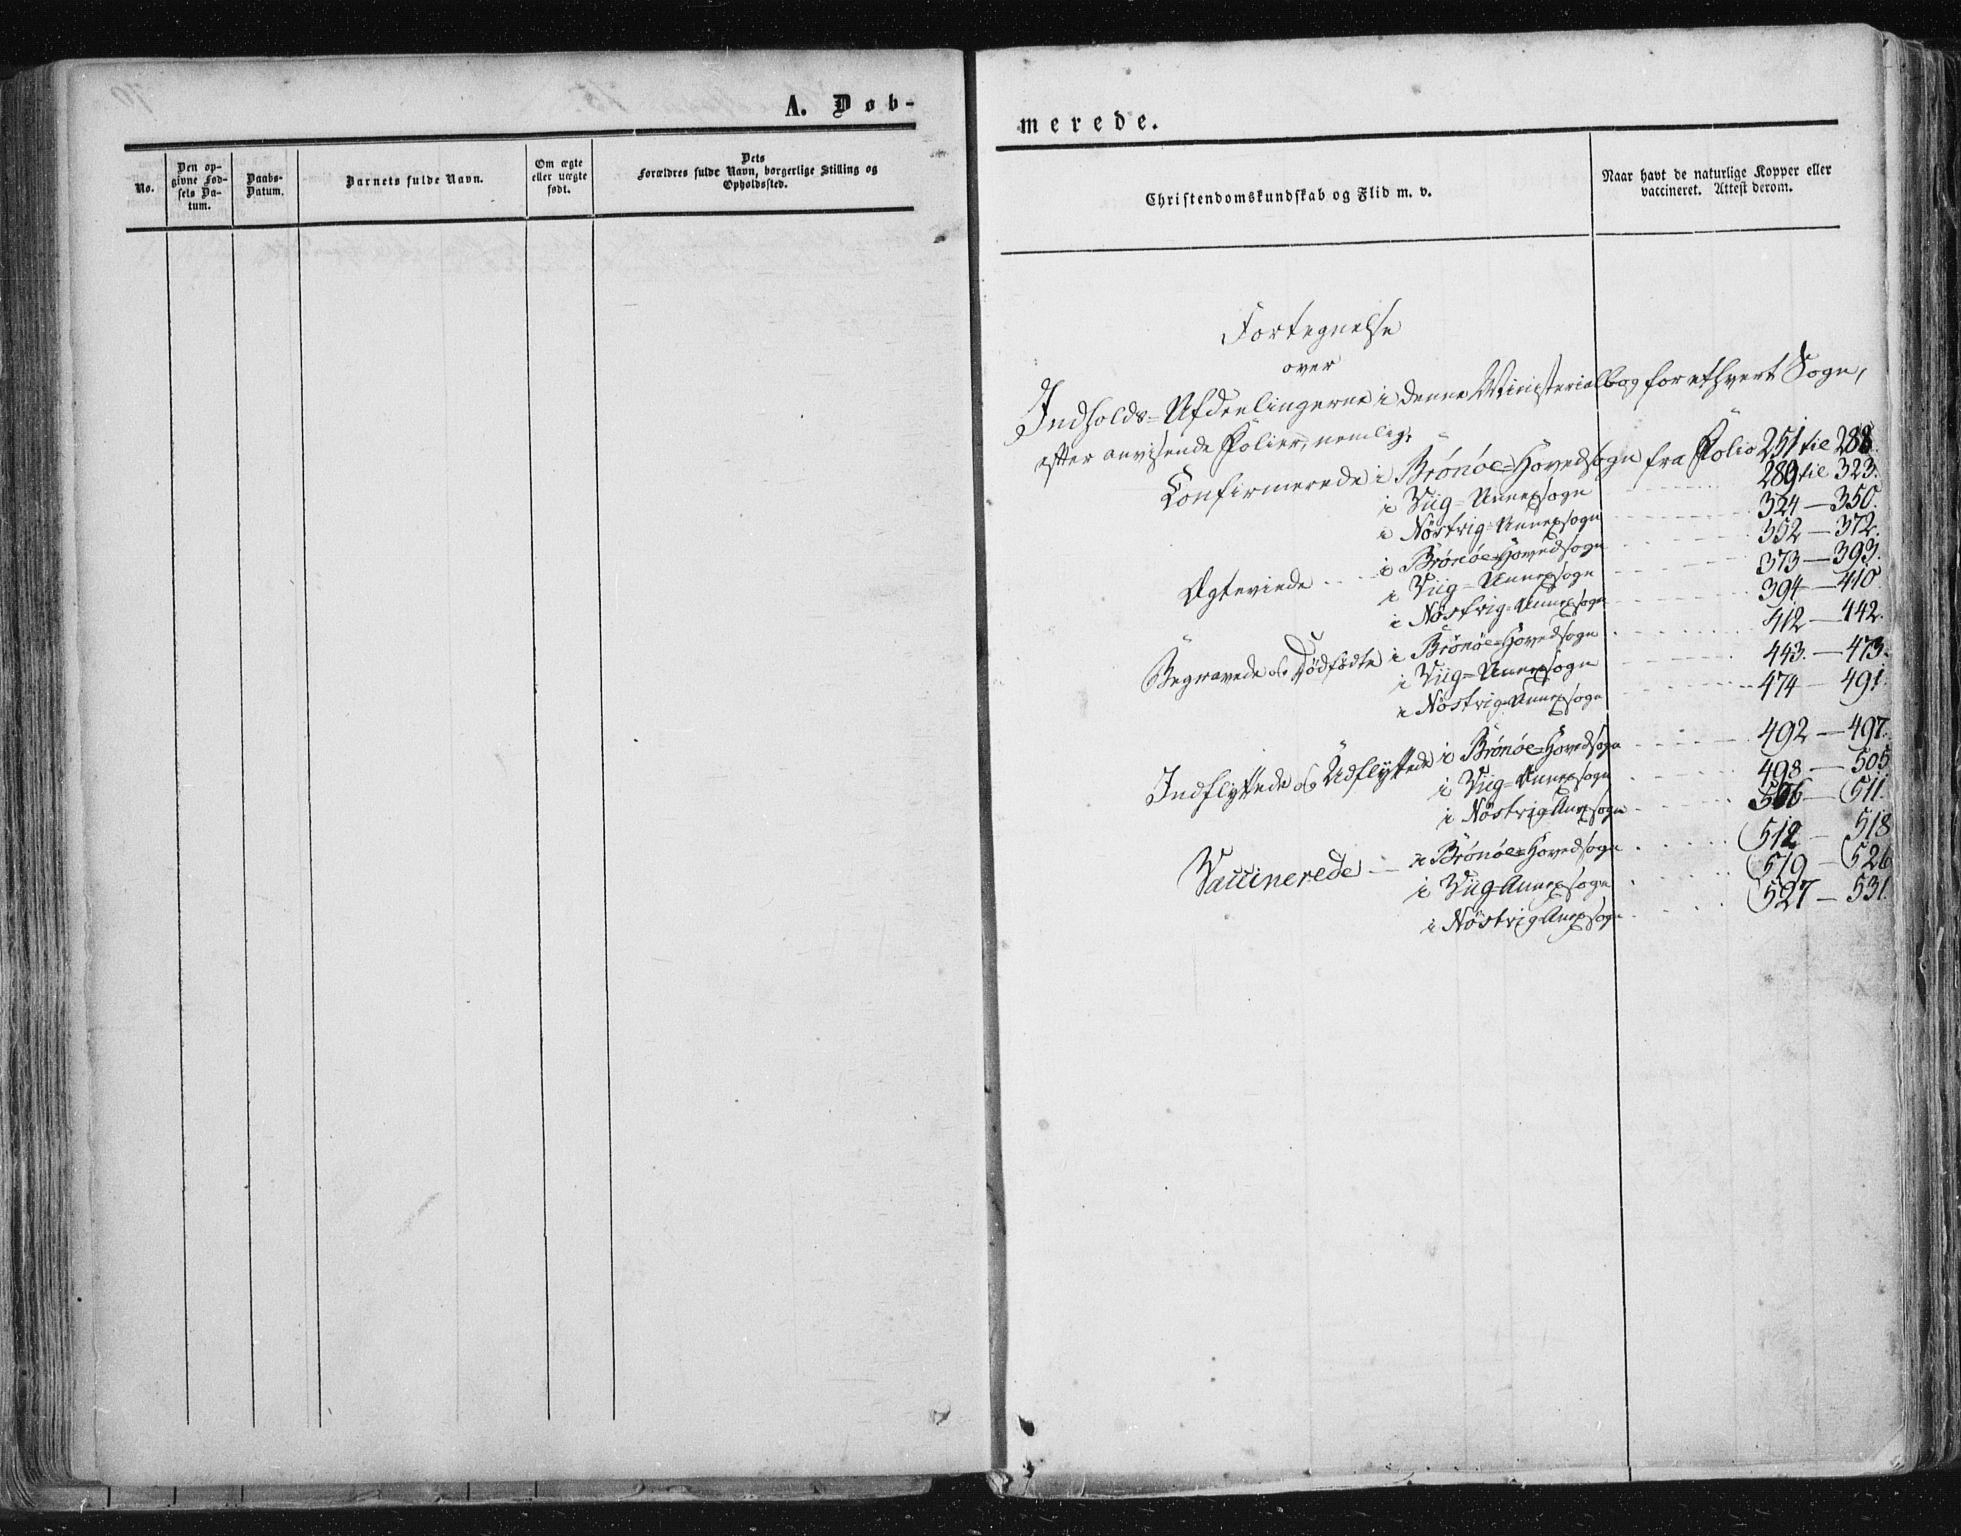 A. Døb-
No.
Den op-
givne Fød-
sels Da-
tum.
Daabs-
Datum.
Barnets fulde Navn.
Om ægte
eller uægte
født.
Dets
Forældres fulde Navn, borgerlige Stilling og
Opholdssted.
merede.
Christendomskundskab og Flid m. v.
Naar havt de naturlige Kopper eller
vaccineret. Attest derom.
Fortegnelse
over
Indholds-Afdeelingerne i denne Ministerialbog for ethvert Sogn,
efter anvisende Folier, nemlig:
Confirmerede i Brönöe-Hovedsogn fra Folio 251 til 288.
i Viig-Annexsogn 289 til 323.
i Nöstvig-Annexsogn 324-350.
Ægteviede i Brönöe-Hovedsogn 352-372.
i Viig-Annexsogn 373-393.
i Nöstvig-Annexsogn 394-410
Begravede og Dødfødte i Brönöe-Hovedsogn 412-442.
i Viig-Annexsogn 443.-473.
i Nöstvig-Annexsogn 474-491.
Indflyttede og Udflyttede i Brönöe-Hovedsogn 492-497.
i Viig-Annexsogn 498-505
i Nöstvig-Anexsogn 506-511.
Vaccinerede i Brönöe-Hovedsogn 512-518
i Viig-Annexsogn 519-526
i Nöstvig-Anexsogn 527-531.